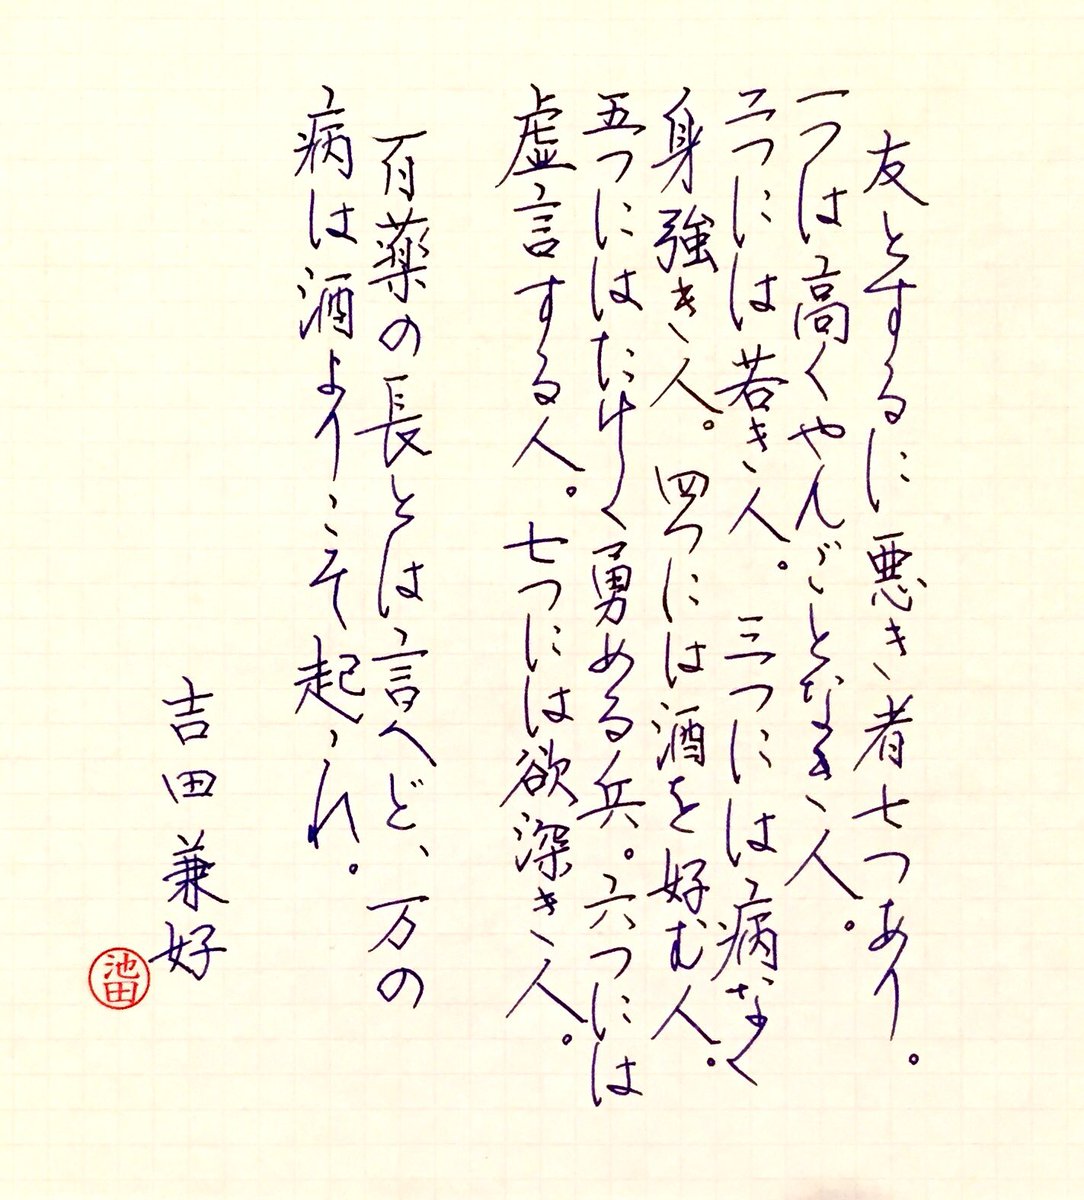 友とするに悪き者七つあり。
一つは高くやんごとなき人。
二つには若き人。三つには病なく
身強き人。四つには酒を好む人。
五つにはたけく勇める兵。六つには
虚言する人。七つには欲深き人。
百薬の長とは言へど、万の
病は酒よりこそ起これ。
吉田兼好
池田